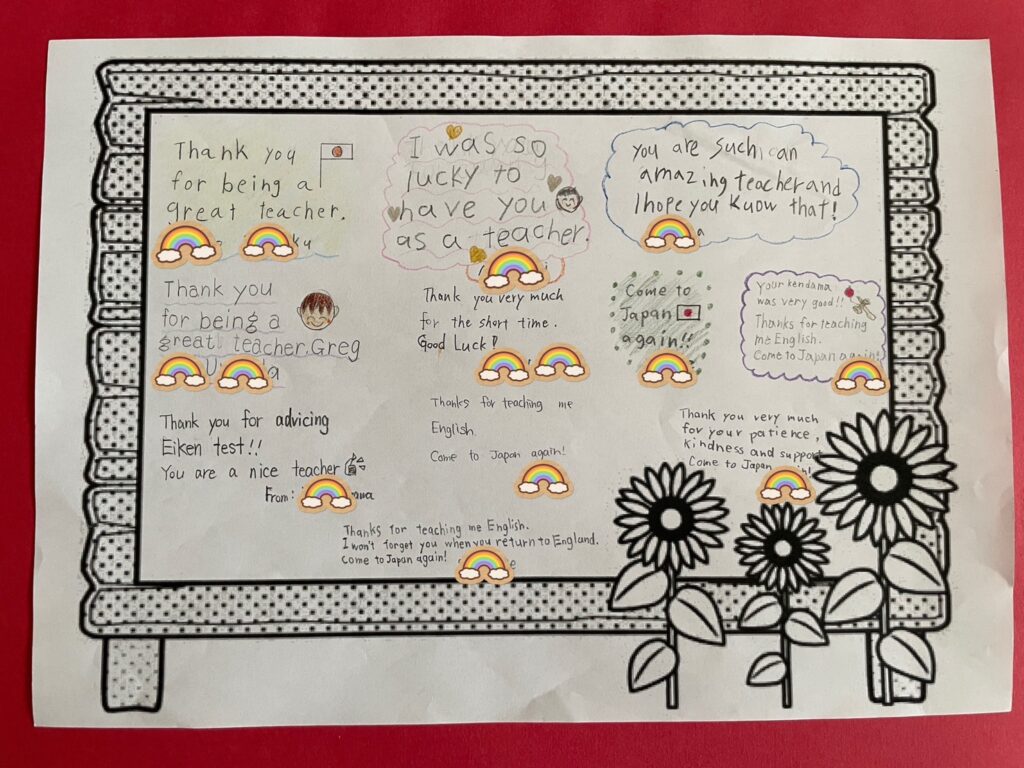 Thank you
for being a
great teacher.
ku
I was so
lucky to
have you
as a teacher.
You are such an
amazing teacher and
I hope you know that!
a
Thank you
for being a
great teacher. Greg
U
a
Thank you very much
for the short time.
Good Luck!
Come to
Japan
again!!
Your kendama
was very good!!
Thanks for teaching
me English.
Come to Japan again!
Thank you for advicing
Eiken test!!
You are a nice teacher
From:
awa
Thanks for teaching me
English.
Come to Japan again!
Thank you very much
for your patience,
kindness and support
Come to Japan
in!
Thanks for teaching me English.
I won't forget you when you return to England.
Come to Japan again!
e